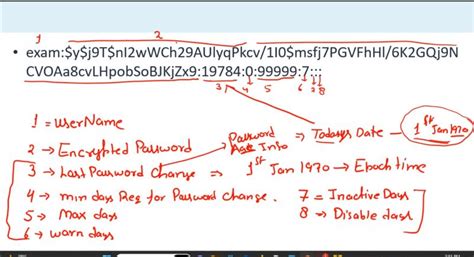 1 2
• exam:$y$j9T$nI2wWCh29AUlyqPkcv/1I0$msfj7PGVFhHl/6K2GQj9N
CVOAa8cvLHpobSoBJKjZx9:19784:0:99999:7:::
3 4 5 6 7 8
1 = userName
2 → Encrypted Password
Password Info ⇒ Today's Date – 1st Jan 1970
3 → Last Password Change ⇒ 1st Jan 1970 → Epoch time
4 → min days Req for Password Change.
7 = Inactive Days
5 → Max days
8 → Disable days
6 → warn days